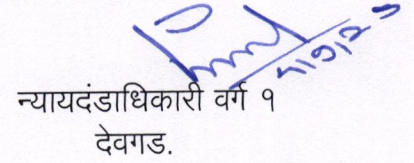 न्यायदंडाधिकारी वर्ग १
देवगड.